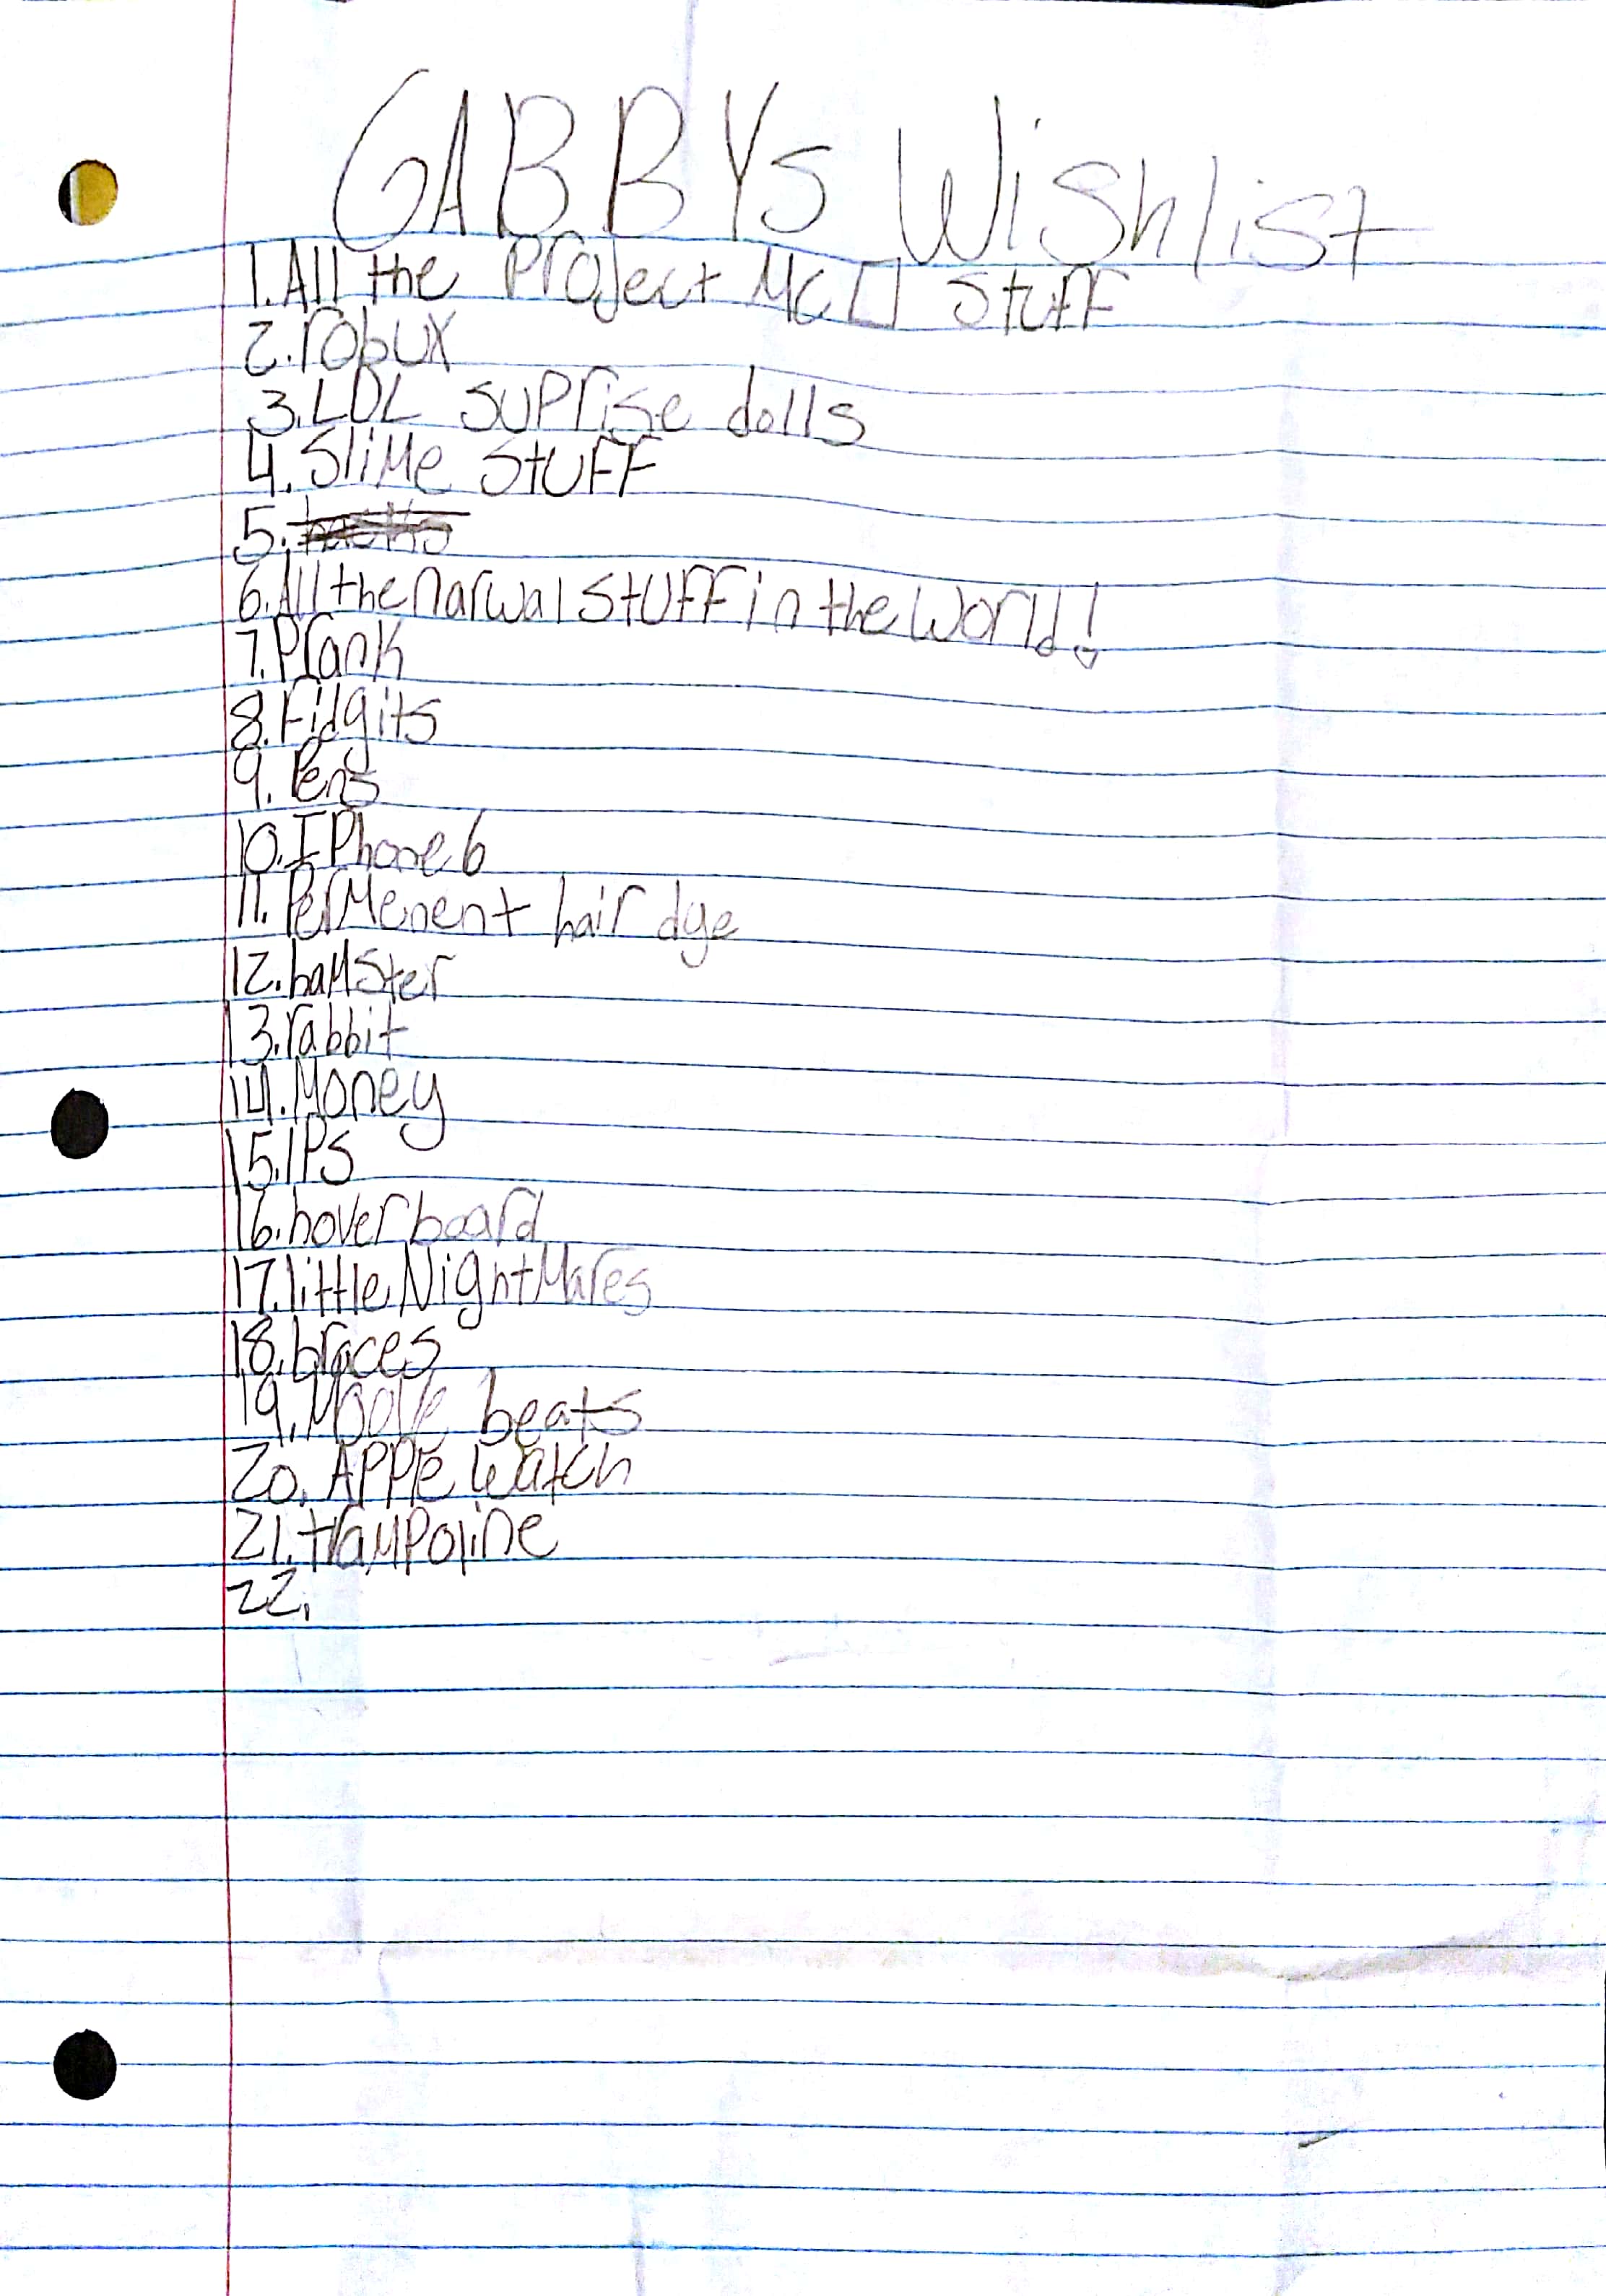 GABBYs Wishlist
1. All the Project Mc□ stuff
2. robux
3. LOL suprise dolls
4. Slime stuff
5.
6. All the narwal stuff in the world!
7. Prank
8. Fidgits
9. Pens
10. IPhone 6
11. Permenent hair dye
12. hamster
13. rabbit
14. Money
15. IPS
16. hover board
17. little NightMares
18. braces
19. beats
20. APPle watch
21. trampoline
22.